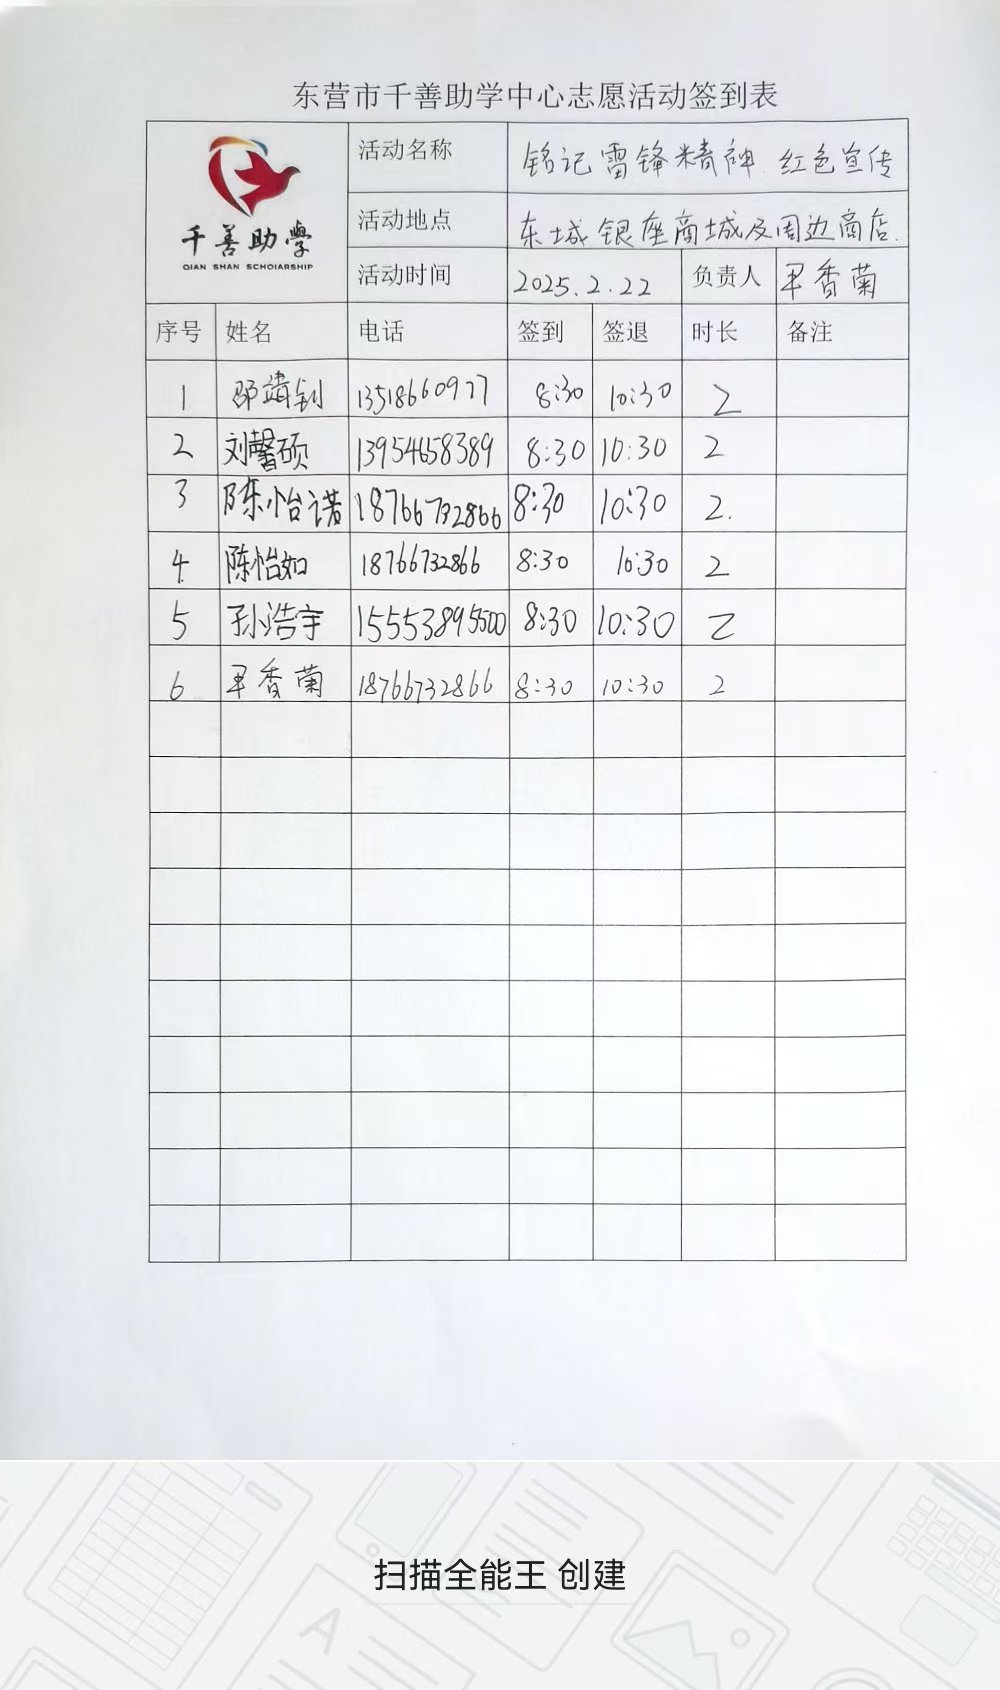 东营市千善助学中心志愿活动签到表
千善助學
QIAN SHAN SCHOIARSHIP
活动名称 铭记雷锋精神 红色宣传
活动地点 东城银座商城及周边商店.
活动时间 2025.2.22 负责人 香菊
序号 姓名 电话 签到 签退 时长 备注
1 邵靖钊 13518660977 8:30 10:30 2
2 刘馨硕 13954658389 8:30 10:30 2
3 陈怡诺 18766732866 8:30 10:30 2.
4 陈怡如 18766732866 8:30 10:30 2
5 孙浩宇 15553895500 8:30 10:30 2
6 香菊 18766732866 8:30 10:30 2
扫描全能王 创建